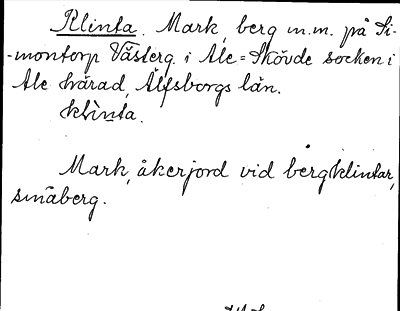 Klinta. Mark, berg m.m. på Si-
-montorp Västerg. i Ale=Skövde socken i
Ale härad, Älfsborgs län.
klinta.
Mark, åkerjord vid bergklintar,
småberg.